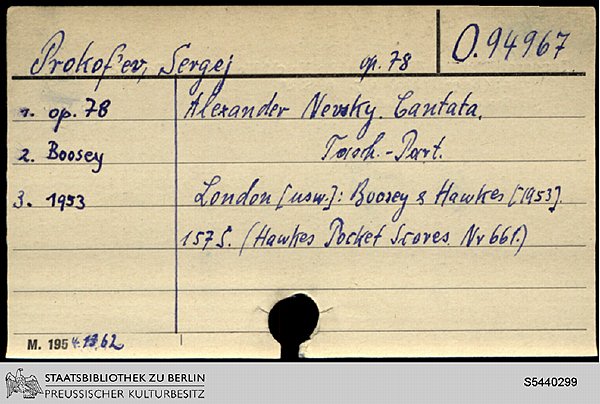 Prokof'ev, Sergej op. 78 O.94967
1. op. 78 Alexander Nevsky. Cantata.
2. Boosey Tasch.-Part.
3. 1953 London [usw.]: Boosey & Hawkes [1953].
157 S. (Hawkes Pocket Scores. Nr 661.)
M. 195 4.1962
STAATSBIBLIOTHEK ZU BERLIN
PREUSSISCHER KULTURBESITZ
S5440299